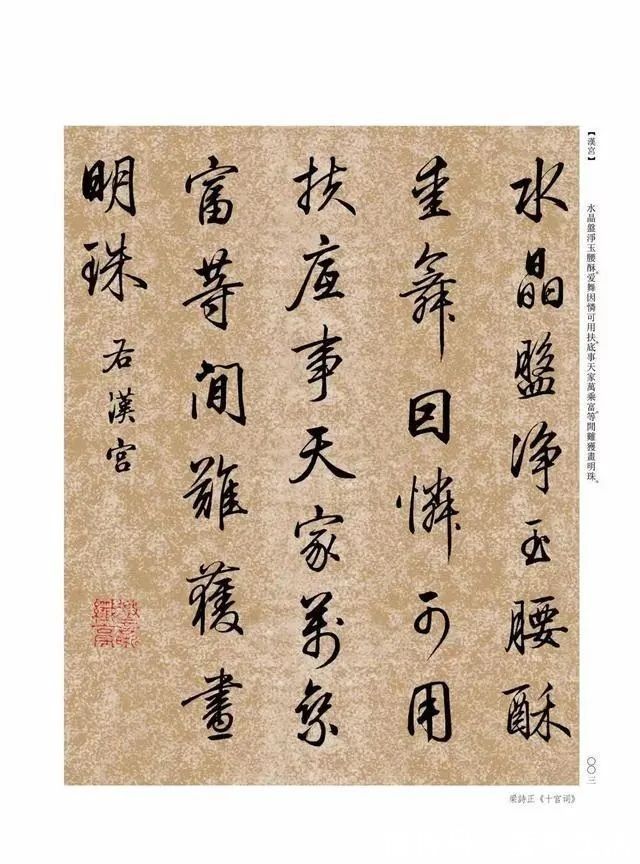 【漢宮】
水晶盤淨玉腰酥。爱舞因憐可用扶。底事天家萬乘富。等閒難獲畫明珠。
水晶盤淨玉腰酥
愛舞因憐可用
扶底事天家萬乘
富等閒難獲畫
明珠
右漢宮
〇〇三
梁詩正《十宫司》